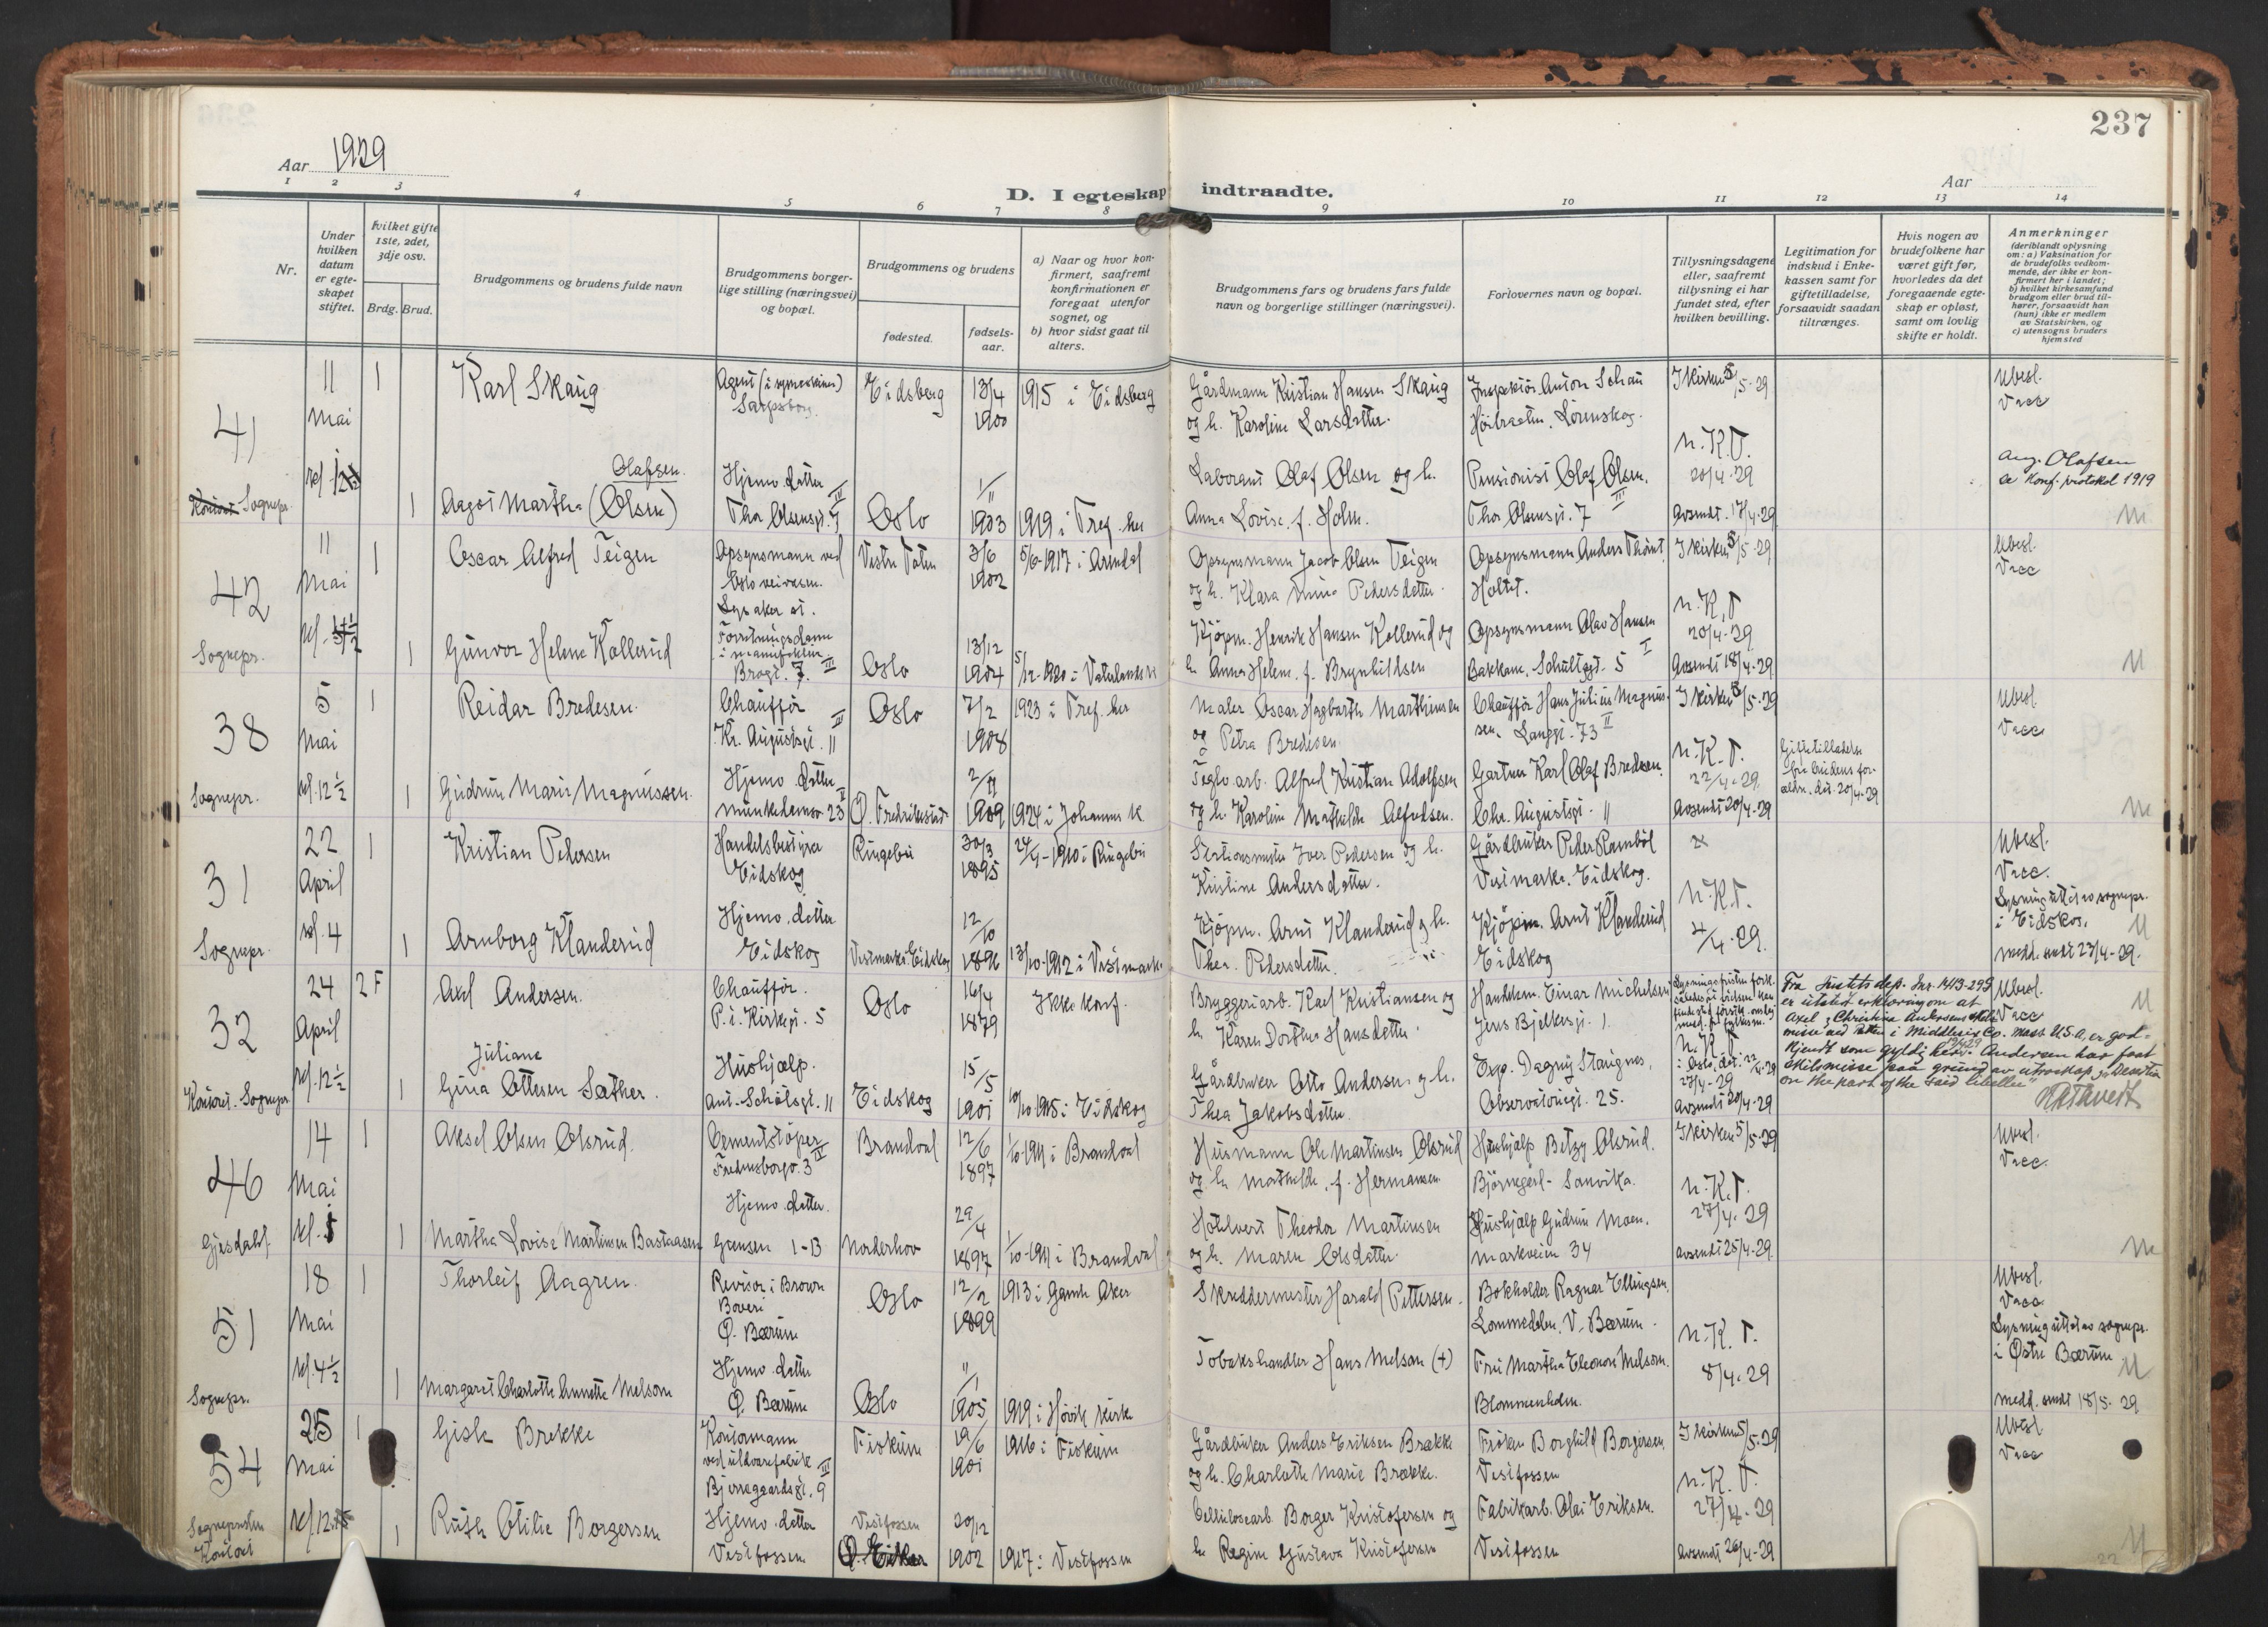 237
Aar 1929
Aar
D. I egteskap indtraadte.
1 2 3 4 5 6 7 8 9 10 11 12 13 14
Nr.
Under hvilken datum er egteskapet stiftet.
hvilket gifte 1ste, 2det, 3dje osv.
Brdg. Brud.
Brudgommens og brudens fulde navn
Brudgommens borgerlige stilling (næringsvei) og bopæl.
Brudgommens og brudens
fødested.
fødselsaar.
a) Naar og hvor konfirmert, saafremt konfirmationen er foregaat utenfor sognet, og
b) hvor sidst gaat til alters.
Brudgommens fars og brudens fars fulde navn og borgerlige stillinger (næringsvei).
Forlovernes navn og bopæl.
Tillysningsdagene eller, saafremt tillysning ei har fundet sted, efter hvilken bevilling.
Legitimation for indskud i Enkekassen samt for giftetilladelse, forsaavidt saadan tiltrænges.
Hvis nogen av brudefolkene har været gift før, hvorledes da det foregaaende egteskap er opløst, samt om lovlig skifte er holdt.
Anmerkninger
(deriblandt oplysning om: a) Vaksination for de brudefolks vedkommende, der ikke er konfirmert her i landet;
b) hvilket kirkesamfund brudgom eller brud tilhører, forsaavidt han (hun) ikke er medlem av Statskirken, og
c) utensogns bruders hjemsted
41
11 Mai
Sognepr.
1 Karl Skaug
Agent (i symaskiner)
Sarpsborg.
Eidsberg
13/4 1900
1915 i Eidsberg
Gårdmann Kristian Hansen Skaug
og h. Karoline Larsdatter.
Inspektör Anton Schau
Lörenskog.
I kirken 5/5-29
n.K.T.
20/4-29
Ubesl.
Vacc
Olafsen.
1 Aagot Martha (Olsen)
Hjemv. datter
Thor Olsensgt. 7 III
Oslo
1/11 1903
1919 i Tref. her
Laborant Olaf Olsen og h.
Anna Lovise, f. Holm.
Pensionist Olaf Olsen.
Thor Olsensgt. 7 III
Avsendt. 17/4-29
Ang. Olafsen
se Konf. protokol 1919
42
11 Mai
Sognepr.
1 Oscar Alfred Teigen
Opsynsmann ved
Oslo veivesen.
Lysaker st.
Vestre Toten
3/6 1902
5/6-1917 i Arendal
Opsynsmann Jacob Olsen Teigen
og h. Klara Mina Pedersdatter.
Opsynsmann Anders
Holtet.
I kirken 5/5-29
n.K.T
20/4-29
Ubesl.
Vacc
1 Gunvor Helene Kollerud
Forretningsdame
i manufaktur.
Brogt. 7. III
Oslo
13/12 1904
5/12-1920 i Vaterlands k
Kjöpm. Henrik Hansen Kollerud og
h. Anna Helene, f. Brynhildsen
Opsynsmann Olav Hansen
Bakken, Schultzgt. 5 I
Avsendt 18/4-29
38
5 Mai
Sognepr.
kl. 12½
1 Reidar Bredesen.
Chaufför
Kr. Augustsgt. 11 III
Oslo
7/2 1908
1923 i Tref. her
Maler Oscar Hagbarth Marthinsen
og Petra Bredesen.
Chaufför Hans Julius Magnussen. Langgt. 73 II
I kirken 5/5-29
n.K.T.
22/4-29.
Giftetilladelse
fra brudens forældre, dat. 20/4-29
Ubesl.
Vacc
1 Gudrun Marie Magnussen.
Hjemv. datter
Munkedamsv. 23 II
Ö. Fredrikstad
2/11 1909
1924 i Johannes K.
Teglv. arb. Alfred Kristian Adolfsen
og h. Karoline Mathilde Alfredsen.
Gartner Karl Olaf Bredesen.
Chr. Augustsgt. 11
Avsendt 20/4-29
31
22 April
kl. 4
Sognepr.
1 Kristian Pedersen
Handelsbestyrer
Eidskog
Ringebu
30/3 1895
24/4-1910 i Ringebu
Stationsmester Iver Pedersen og h.
Kristine Andersdatter.
Gårdbruker Peder Ramböl
Vestmarka. Eidskog.
n.K.T.
4/4-29.
Ubesl.
Vacc.
Lysning utst. av sognepr.
i Eidskog.
medd. sendt 23/4-29.
1 Arnborg Klanderud
Hjemv. datter
Eidskog
Vestmarka. Eidskog
12/10 1896
13/10-1912 i Vestmark.
Kjöpm. Arnt Klanderud og h.
Thea. Pedersdatter.
Kjöpm. Arnt Klanderud
Eidskog
32
24 April
kl. 12½
Kontoret. Sognepr.
2 F Axel Andersen.
Chauffør.
P. i. Kirkegt. 5
Oslo
16/4 1879
Ikke konf.
Bryggeriarb. Karl Kristiansen og
h. Karen Dorthea Hansdatter.
Handelsm. Einar Michelsen
Jens Bjelkesgt. 1.
n.K.T
27/4-29
Avsendt 20/4-29
Fra Justitsdep. Jnr. 1413-29 J
er utstedt erklæring om at
Axel & Christina Andersens skilsmisse ved Retten i Middlesex Co. Mass U.S.A, er godkjendt som gyldig her. Andersen har faat
skilsmisse paa grund av utroskap & "Desertion
on the part of the said libellee"
Ubesl.
Vacc
Juliane
1 Gina Ottesen Sæther.
Hushjælp.
Ant. Schölsgt. 11
Eidskog
15/5 1901
10/10 1915 i Eidskog
Gårdbruker Otto Andersen og h.
Thea Jakobsdatter.
Exp. Dagny Staignes,
Observatoriegt. 25.
46
14 Mai
kl. 5
Gjesdahl.
1 Aksel Olsen Olsrud.
Cementstöper
Fredensborgv. 3 IV
Brandval
12/6 1897
1/10-1911 i Brandval
Husmann Ole Martinsen Olsrud
og h. Mathilde, f. Hermansen.
Hushjælp Betzy Olsrud.
Björnegård - Sanvika.
I kirken 5/5-29
n.K.T.
27/4-29
Ubesl.
Vacc.
1 Martha Lovise Martinsen Bastaasen
Hjemv. datter.
Grensen 1-B
Norderhov
29/4 1897
1/10-1911 i Brandval
Theodor Martinsen
og h. Maren Olsdatter.
Hushjælp Gudrun Moen.
Markveien 34
avsendt 25/4-29
51
18 Mai
kl. 4½
Sognepr.
1 Thorleif Aagren.
Revisor i Brown
Boveri
Ö. Bærum
Oslo
12/2 1899
1913 i Gamle Aker
Skreddermester Harald Pettersen.
Bokholder Ragnar Ellingsen,
Lommedalen, V. Bærum.
n.K.T.
8/4-29
Ubesl.
Vacc
Lysning utst. av sognepr.
i Östre Bærum
medd. sendt 18/5-29
1 Margaret Charlotte Annette Melsom
Hjemv. datter
Ö. Bærum
Oslo
11/1 1905
1919 i Hövik kirke
Tobakshandler Hans Melsom (+)
Fru Martha Eleonore Melsom.
Blommenholm.
54
25 Mai
Kontoret
1 Gisle Brekke
Kontormann
ved uldvarefabrik
Bjerregaardsgt. 9 III
Fiskum
19/6 1901
1916 i Fiskum
Gårdbruker Anders Eriksen Brække
og h. Charlotte Marie Brække.
Fröken Borghild Borgersen.
Vestfossen
I kirken 5/5-29
n.K.T.
27/4-29
Ubesl
Vacc
1 Ruth Otilie Borgersen
Hjemv. datter
Vestfossen
Vestfossen
Ö. Eiker
20/12 1902
1917 i Vestfossen
Cellulosearb. Borger Kristofersen og
h. Regine Gustava Kristofersen
Fabrikarb. Olai Eriksen.
Vestfossen
Avsendt 26/4-29